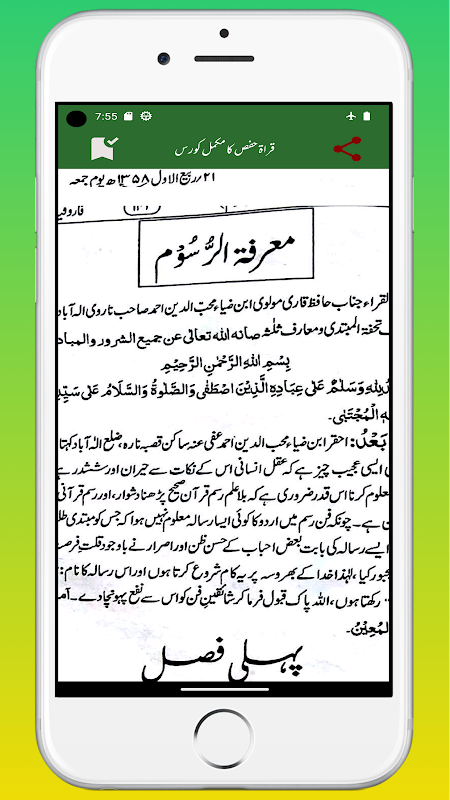 7:55
قراۃ حفص کا مکمل کورس
۲۱/ربیع الاول ۱۳۵۸ھ یوم جمعہ
معرفۃ الرُّسُوْم
لقراء جناب حافظ قاری مولوی ابن ضیاء محب الدین احمد صاحب ناروی الہ آباد
تحفۃ المبتدی ومعارف ثلٰثہ صانہ اللہ تعالٰی عن جمیع الشرور والمباد
بِسْمِ اللهِ الرَّحْمٰنِ الرَّحِيْمِ
وَسَلٰمٌ عَلٰی عِبَادِهِ الَّذِيْنَ اصْطَفٰی وَالصَّلٰوةُ وَالسَّلَامُ عَلٰی سَيِّدِ
الْمُجْتَبٰی۔
بَعْدُ: احقر ابن ضیاء محب الدین احمد عفی عنہ ساکن قصبہ نارہ، ضلع الہٰ آباد کہتا
ایسی عجیب چیز ہے کہ عقل انسانی اس کے نکات سے حیران اور ششدر ہے
معلوم کرنا اس قدر ضروری ہے کہ بلا علم رسم قرآن صحیح پڑھنا دشوار، اور رسم قرآنی
ہے۔ چونکہ فن رسم میں اردو کا کوئی ایسا رسالہ معلوم نہیں ہوا کہ جس کو مبتدی
ایسے رسالہ کی بابت بعض احباب کے حسن ظن اور اصرار نے باوجود قلت فرصت
کیا، لہٰذا خدا کے بھروسہ پر یہ کام شروع کرتا ہوں اور اس رسالہ کا نام:
رکھتا ہوں، اللہ پاک قبول فرما کر شائقین فن کو اس سے نفع پہونچادے۔
پہلی فصل